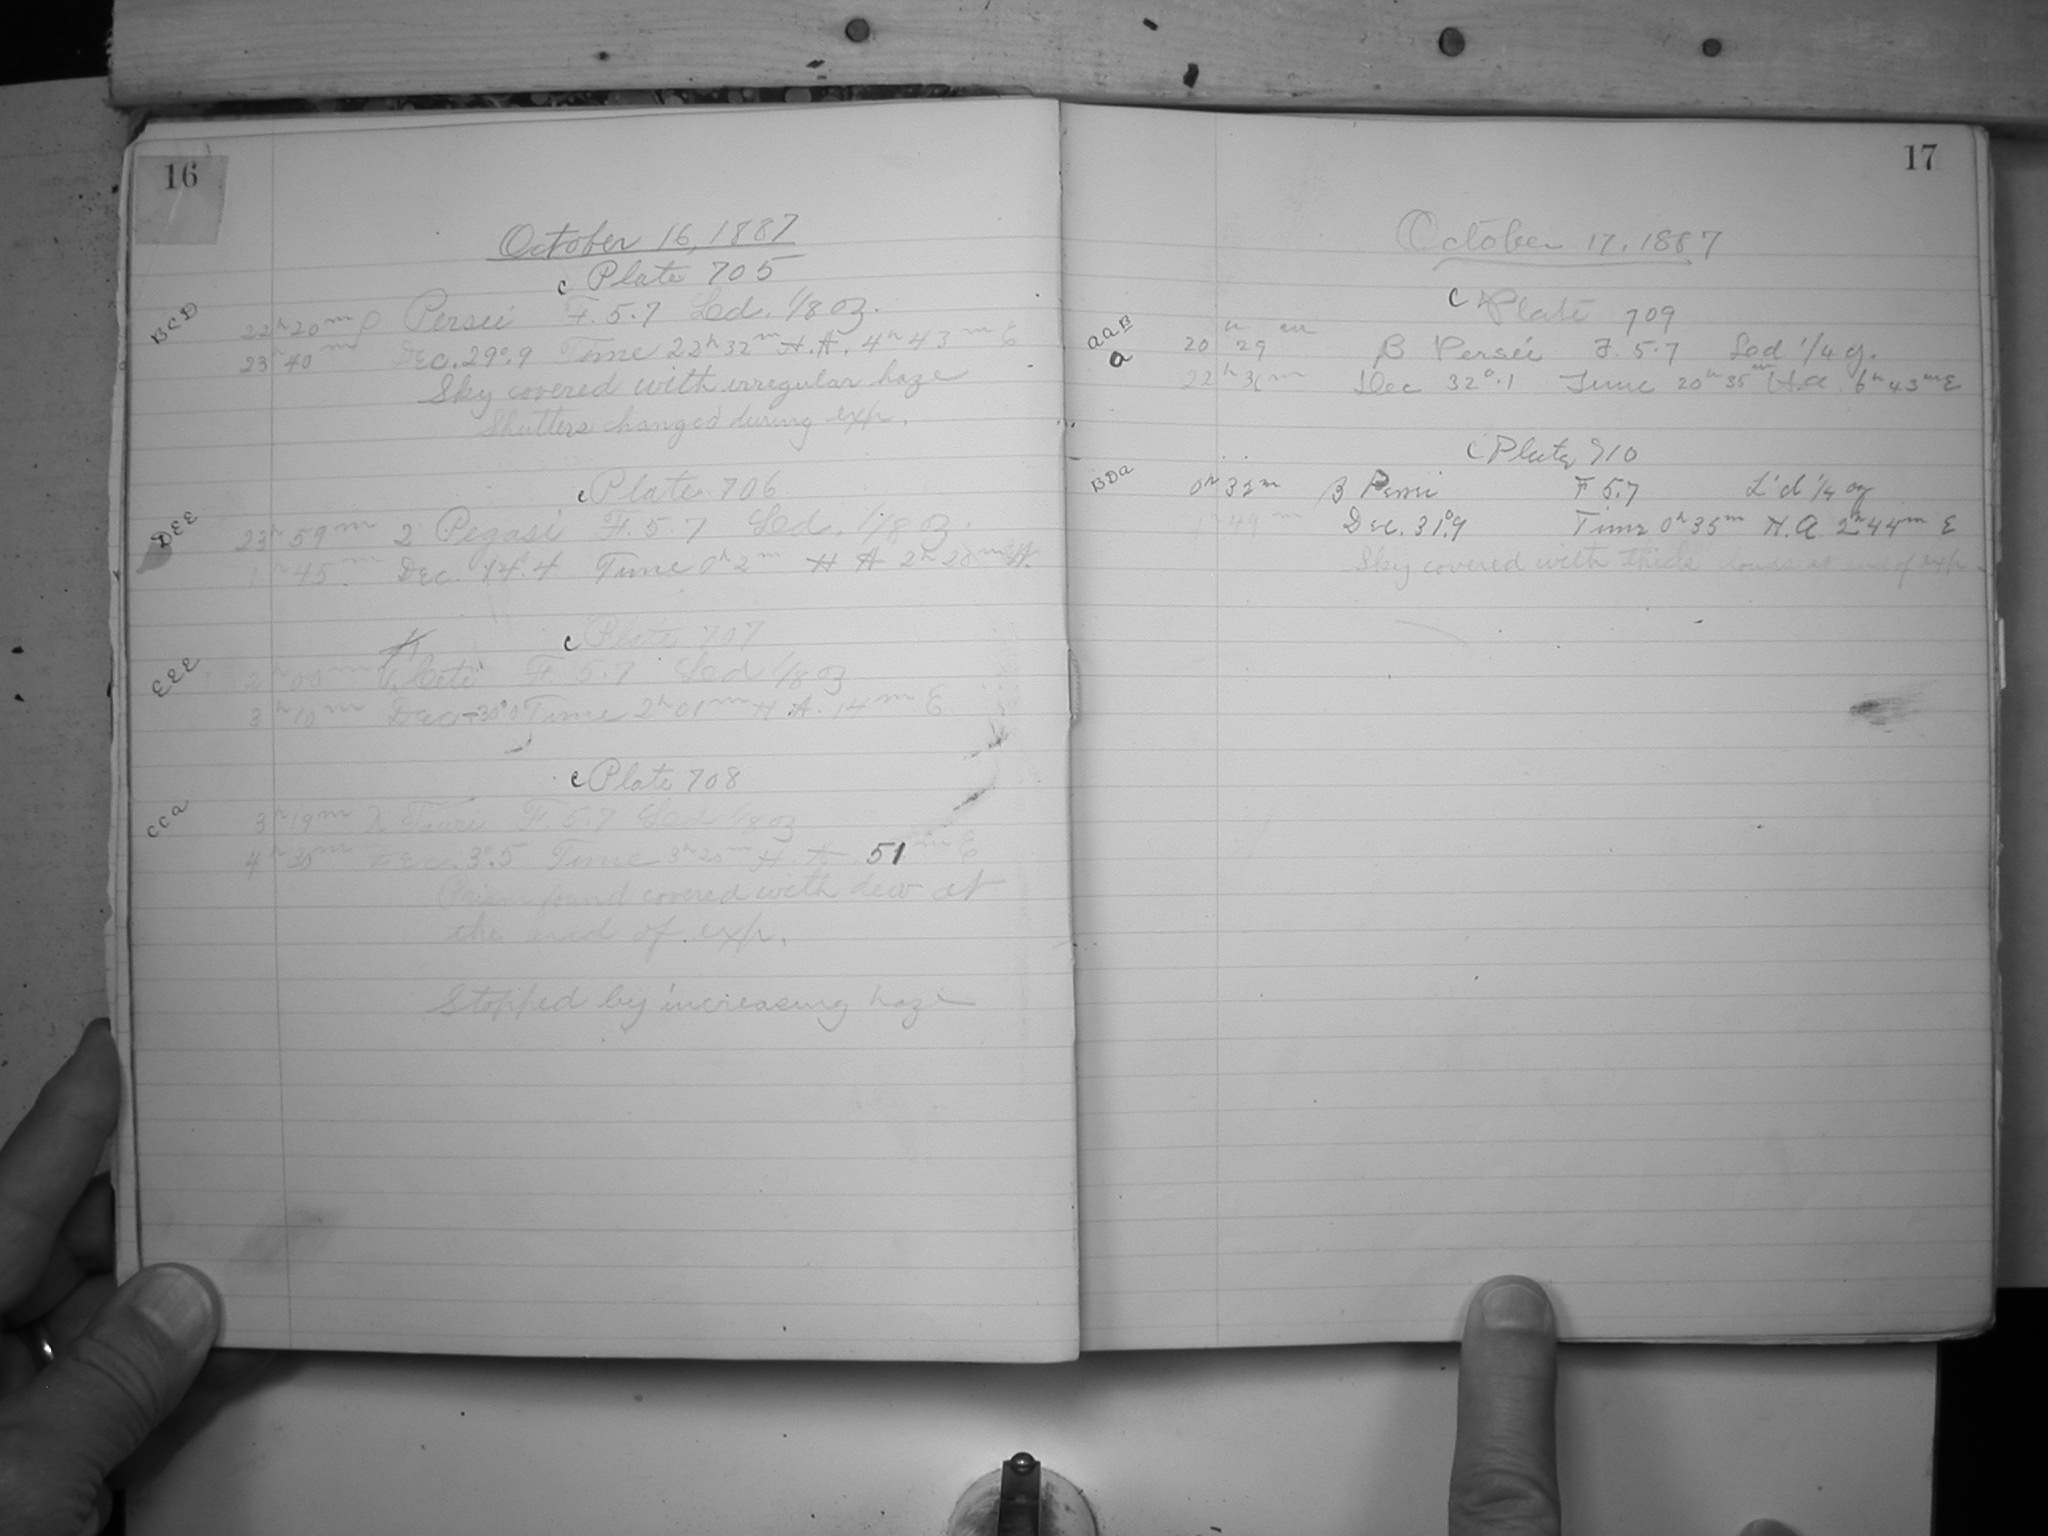 16
October 16, 1887
c Plate 705
BCD 22h20m ρ Persei F. 5.7 Led. 1/8 oz.
23h40m Dec. 29°.9 Time 22h32m H.A. 4h43m E
Sky covered with irregular haze
Shutters changed during exp.
c Plate 706
DEE 23h59m 2 Pegasi F. 5.7 Led. 1/8 oz.
1h45m Dec. 14.4 Time 0h2m H A 2h28m
c Plate 707
EEE Ceti F. 5.7 Led 1/8 oz
3h10m Dec -30°.0 Time 2h01m H.A. 14m E
c Plate 708
CCA 3h19m λ Tauri F. 5.7 Led 1/8 oz
4h35m Dec. 3°.5 Time 3h20m H.A. 51m E
Prism found covered with dew at
the end of exp.
Stopped by increasing haze
17
October 17. 1887
c Plate 709
aaB 20h29m β Persei F. 5.7 Led 1/4 oz.
a 22h31m Dec 32°.1 Time 20h35m H.a 6h43mE
c Plate 710
BDa 0h32m β Persei F 5.7 L'd 1/4 oz
1h49m Dec. 31°.9 Time 0h35m H.A. 2h44m E
Sky covered with thick clouds at end of exp.